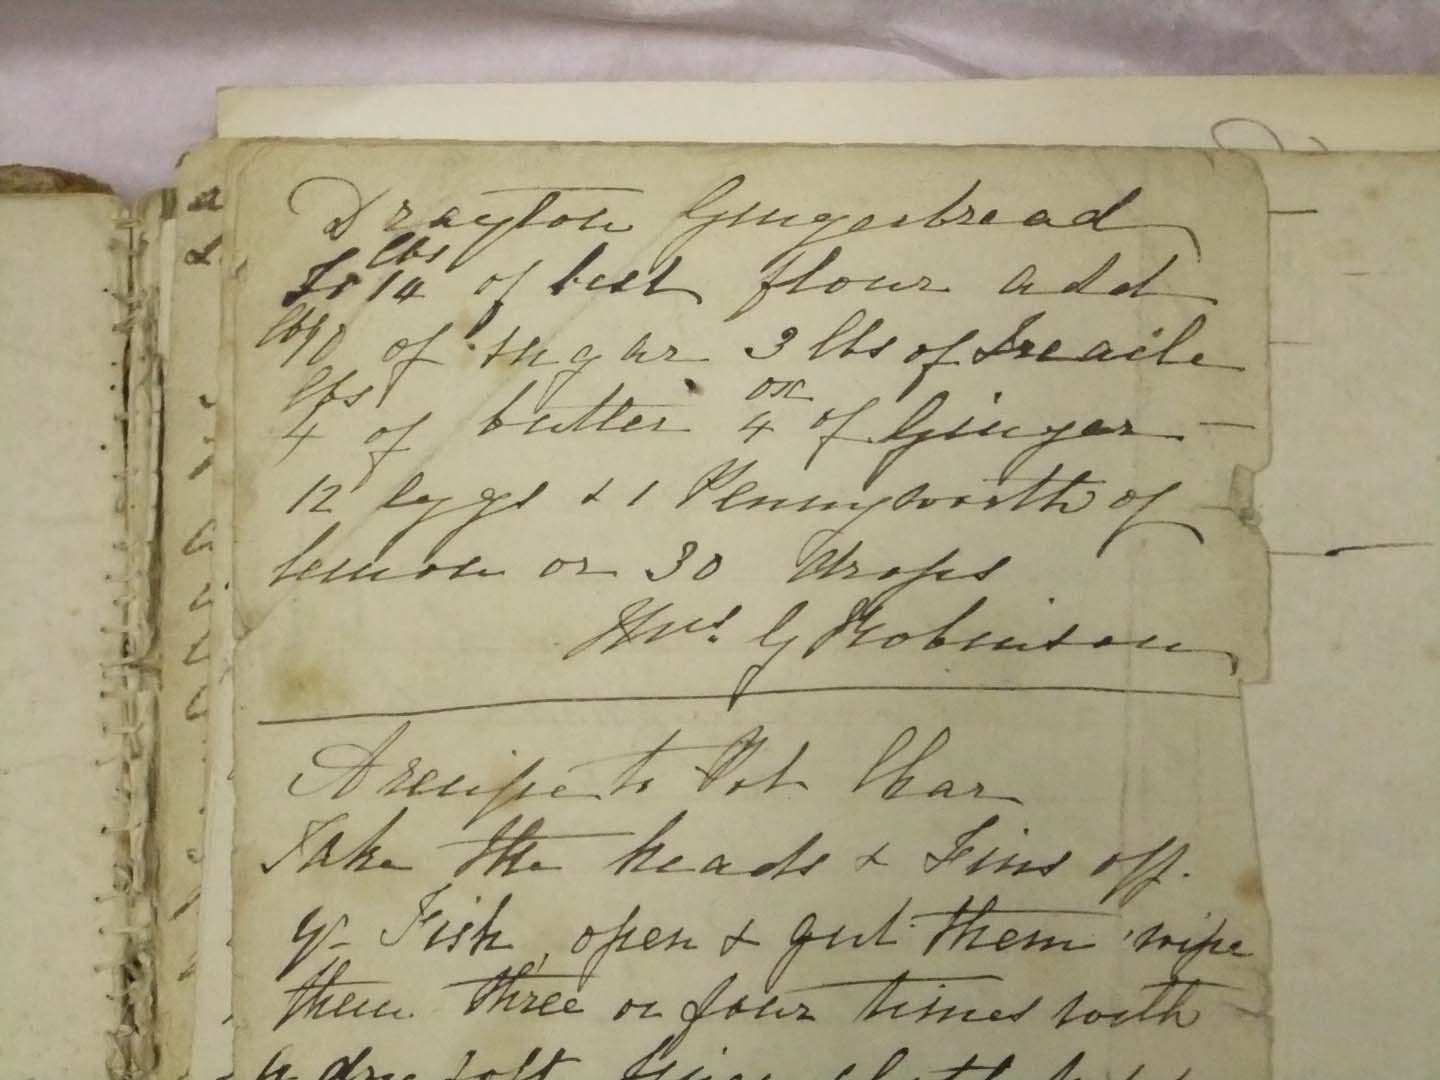 Drayton Gingerbread
To 14 lbs of best flour add
lbs 10 of sugar 3 lbs of Treacle
lbs 4 of butter 4 oz of Ginger
12 eggs & 1 Pennyworth of
lemon or 30 drops
Mrs. G Robinson
A recipe to Pot Char
Take the heads & Fins off
yr Fish, open & gut them wipe
them three or four times with
a dry soft linen cloth